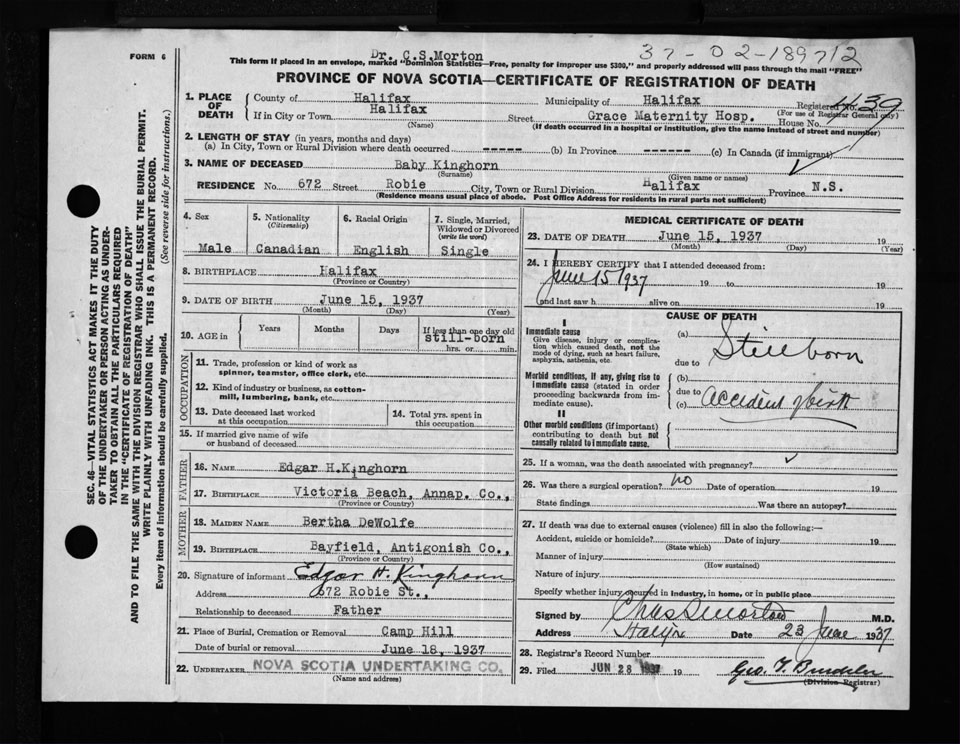 FORM 6
Dr. C.S.Morton
37-02-189712
This form if placed in an envelope, marked "Dominion Statistics—Free, penalty for improper use $300," and properly addressed will pass through the mail "FREE"
PROVINCE OF NOVA SCOTIA—CERTIFICATE OF REGISTRATION OF DEATH
SEC. 46—VITAL STATISTICS ACT MAKES IT THE DUTY
OF THE UNDERTAKER OR PERSON ACTING AS UNDER-
TAKER TO OBTAIN ALL THE PARTICULARS REQUIRED
IN THE "CERTIFICATE OF REGISTRATION OF DEATH"
AND TO FILE THE SAME WITH THE DIVISION REGISTRAR WHO SHALL ISSUE THE BURIAL PERMIT.
WRITE PLAINLY WITH UNFADING INK. THIS IS A PERMANENT RECORD.
Every item of information should be carefully supplied. (See reverse side for instructions.)
1. PLACE OF DEATH
County of Halifax Municipality of Halifax Registered No. 439
(For use of Registrar General only)
If in City or Town Halifax Street Grace Maternity Hosp. House No.
(Name) (If death occurred in a hospital or institution, give the name instead of street and number)
2. LENGTH OF STAY (in years, months and days)
(a) In City, Town or Rural Division where death occurred ----- (b) In Province ------ (c) In Canada (if immigrant)
3. NAME OF DECEASED Baby Kinghorn
(Surname) (Given name or names)
RESIDENCE No. 672 Street Robie City, Town or Rural Division Halifax Province N.S.
(Residence means usual place of abode. Post Office Address for residents in rural parts not sufficient)
4. Sex
Male
5. Nationality
(Citizenship)
Canadian
6. Racial Origin
English
7. Single, Married, Widowed or Divorced
(write the word)
Single
8. BIRTHPLACE Halifax
(Province or Country)
9. DATE OF BIRTH June 15, 1937
(Month) (Day) (Year)
10. AGE in Years Months Days If less than one day old
still-born
hrs. or min.
OCCUPATION
11. Trade, profession or kind of work as
spinner, teamster, office clerk, etc.
12. Kind of industry or business, as cotton-
mill, lumbering, bank, etc.
13. Date deceased last worked
at this occupation
14. Total yrs. spent in
this occupation
15. If married give name of wife
or husband of deceased
FATHER
16. NAME Edgar H.Kinghorn
17. BIRTHPLACE Victoria Beach, Annap. Co.,
(Province or Country)
MOTHER
18. MAIDEN NAME Bertha DeWolfe
19. BIRTHPLACE Bayfield, Antigonish Co.,
(Province or Country)
20. Signature of informant Edgar H. Kinghorn
Address 672 Robie St.,
Relationship to deceased Father
21. Place of Burial, Cremation or Removal Camp Hill
Date of burial or removal June 18, 1937
22. UNDERTAKER NOVA SCOTIA UNDERTAKING CO.
(Name and address)
MEDICAL CERTIFICATE OF DEATH
23. DATE OF DEATH June 15, 1937 19
(Month) (Day) (Year)
24. I HEREBY CERTIFY that I attended deceased from:
June 15 1937 19 to 19
(and last saw h alive on 19
CAUSE OF DEATH
I
Immediate cause
Give disease, injury or complica-
tion which caused death, not the
mode of dying, such as heart failure,
asphyxia, asthenia, etc.
(a) Stillborn
due to
Morbid conditions, if any, giving rise to
immediate cause (stated in order
proceeding backwards from im-
mediate cause).
(b)
due to
(c) Accident of birth
II
Other morbid conditions (if important)
contributing to death but not
causally related to immediate cause.
25. If a woman, was the death associated with pregnancy?
26. Was there a surgical operation? no Date of operation 19
State findings Was there an autopsy?
27. If death was due to external causes (violence) fill in also the following:—
Accident, suicide or homicide? Date of injury 19
(State which)
Manner of injury
(How sustained)
Nature of injury
Specify whether injury occurred in industry, in home, or in public place
Signed by Chas S Morton M.D.
Address Halifx Date 23 June 1937
28. Registrar's Record Number
29. Filed JUN 28 1937 19
(Division Registrar)